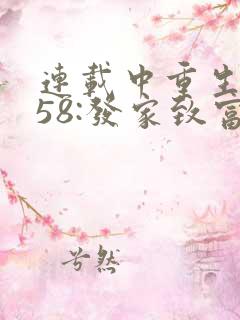 連載中重生
58:發家致富
兮然